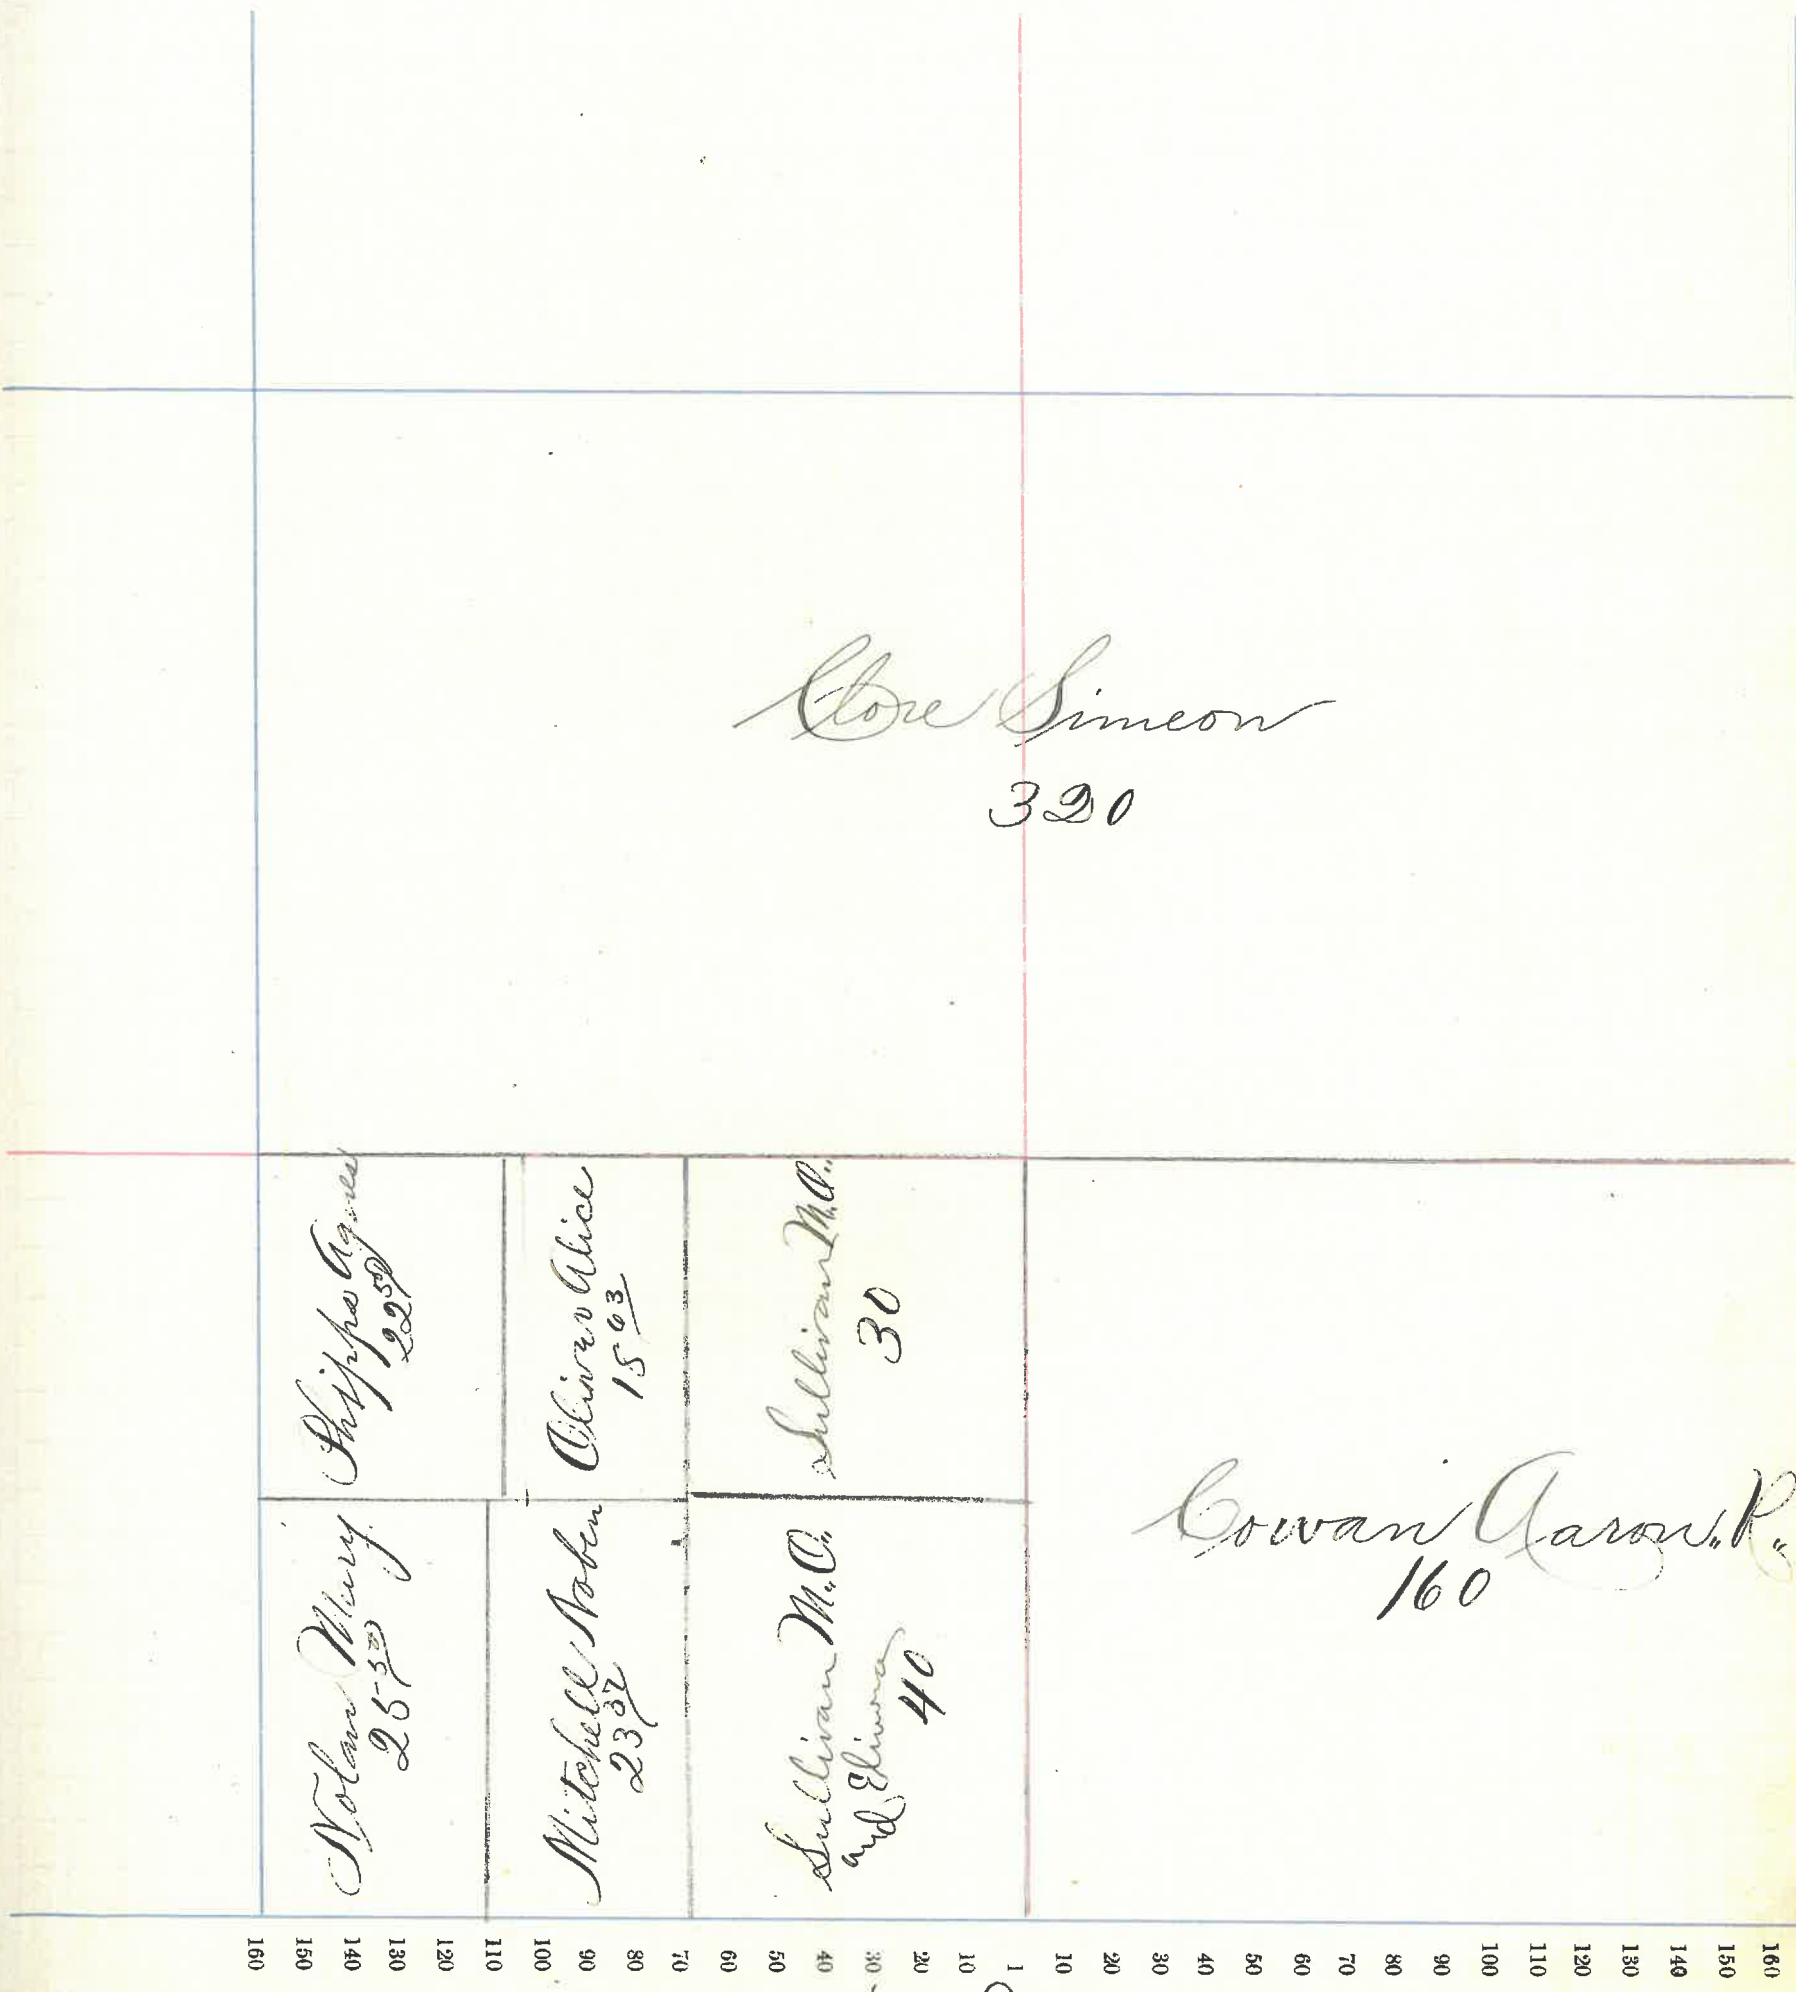 Clore Simeon
320
Phipps Agnes
22 50
Oliver Alice
15 63
Sullivan M.O.
30
Nolan Mary
25 50
Mitchell
23 37
Sullivan M.O.
and
40
Cowan Aaron R.
160
160 150 140 130 120 110 100 90 80 70 60 50 40 30 20 10 1 10 20 30 40 50 60 70 80 90 100 110 120 130 140 150 160